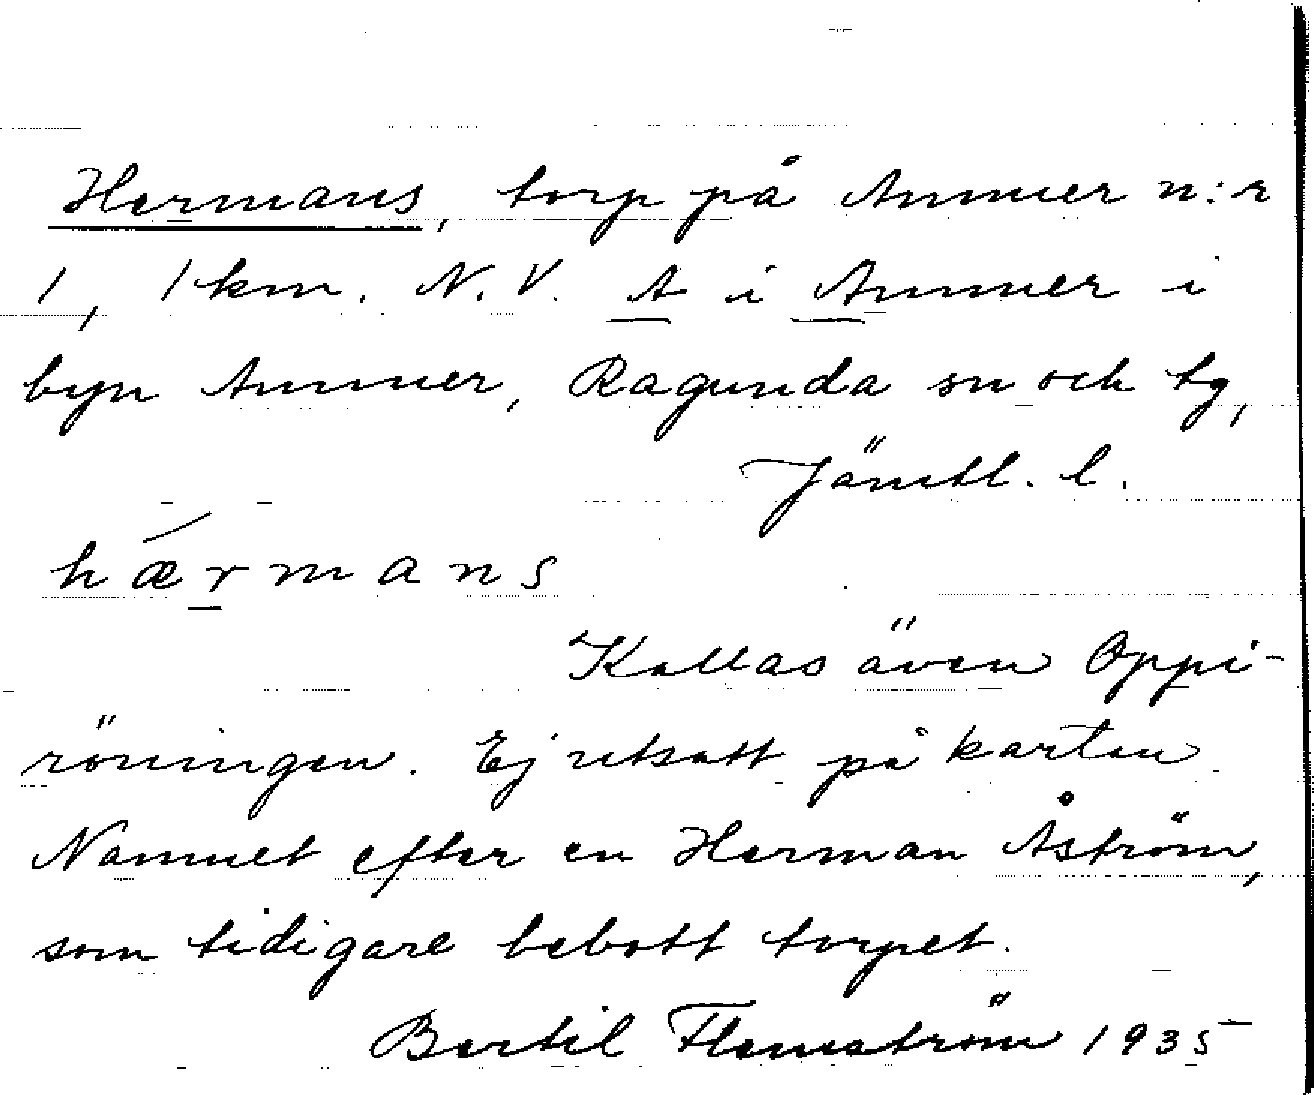 Hermans, torp på Ammer n:r
1, 1 km. N.V. A i Ammer i
byn Ammer, Ragunda sn och tg,
Jämtl. l.
hǽrmans
Kallas även Oppi-
röningen. Ej utsatt på kartan
Namnet efter en Herman Åström,
som tidigare bebott torpet.
Bertil Flemström 1935